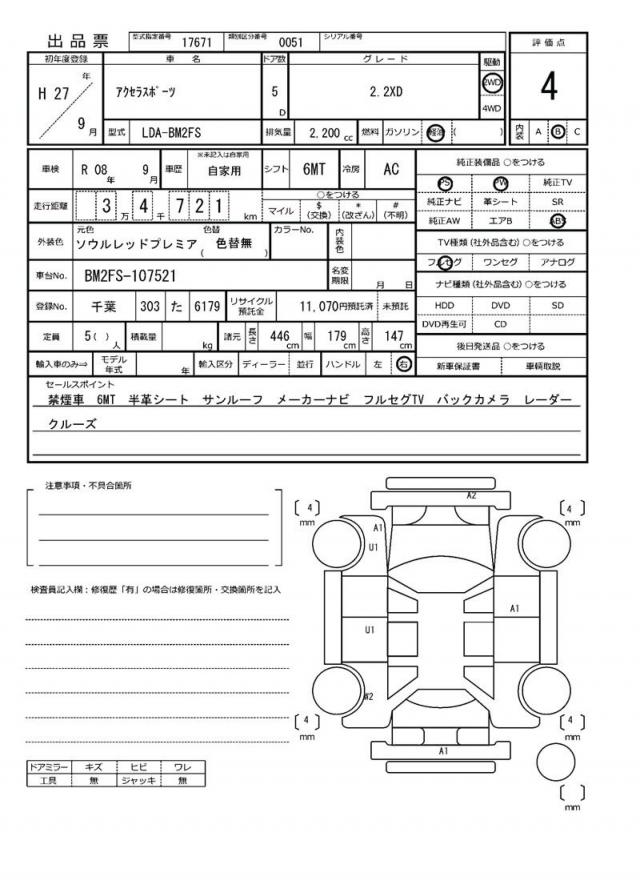 出品票 型式指定番号 17671 類別区分番号 0051 シリアル番号
初年度登録 車名 ドア数 グレード 駆動 評価点
H 27 年 9 月 アクセラスポーツ 5 D 2.2XD 2WD 4WD 4
型式 LDA-BM2FS 排気量 2,200 cc 燃料 ガソリン 軽油 ( ) 内装 A B C
車検 R 08 年 9 月 車歴 ※未記入は自家用 自家用 シフト 6MT 冷房 AC 純正装備品 ○をつける
PS PW 純正TV
走行距離 3 万 4 千 7 2 1 km ○をつける マイル $ (交換) * (改ざん) # (不明)
純正ナビ 革シート SR
純正AW エアB ABS
外装色 元色 ソウルレッドプレミア 色替 ( 色替無 ) カラーNo. 内装色
TV種類(社外品含む) ○をつける
フルセグ ワンセグ アナログ
車台No. BM2FS-107521 名変期限 月 日
ナビ種類(社外品含む) ○をつける
登録No. 千葉 303 た 6179 リサイクル預託金 11,070円預託済 未預託
HDD DVD SD
DVD再生可 CD
定員 5( ) 人 積載量 kg 諸元 長さ 446 cm 幅 179 cm 高さ 147 cm
後日発送品 ○をつける
輸入車のみ⇒ モデル年式 年 輸入区分 ディーラー 並行 ハンドル 左 右
新車保証書 車輌取説
セールスポイント
禁煙車 6MT 半革シート サンルーフ メーカーナビ フルセグTV バックカメラ レーダー
クルーズ
注意事項・不具合箇所
検査員記入欄：修復歴「有」の場合は修復箇所・交換箇所を記入
A2
〔 4 〕 mm
〔 4 〕 mm
A1
U1
A1
U1
W2
〔 4 〕 mm
〔 4 〕 mm
A1
〔 〕 mm
ドアミラー キズ ヒビ ワレ
工具 無 ジャッキ 無